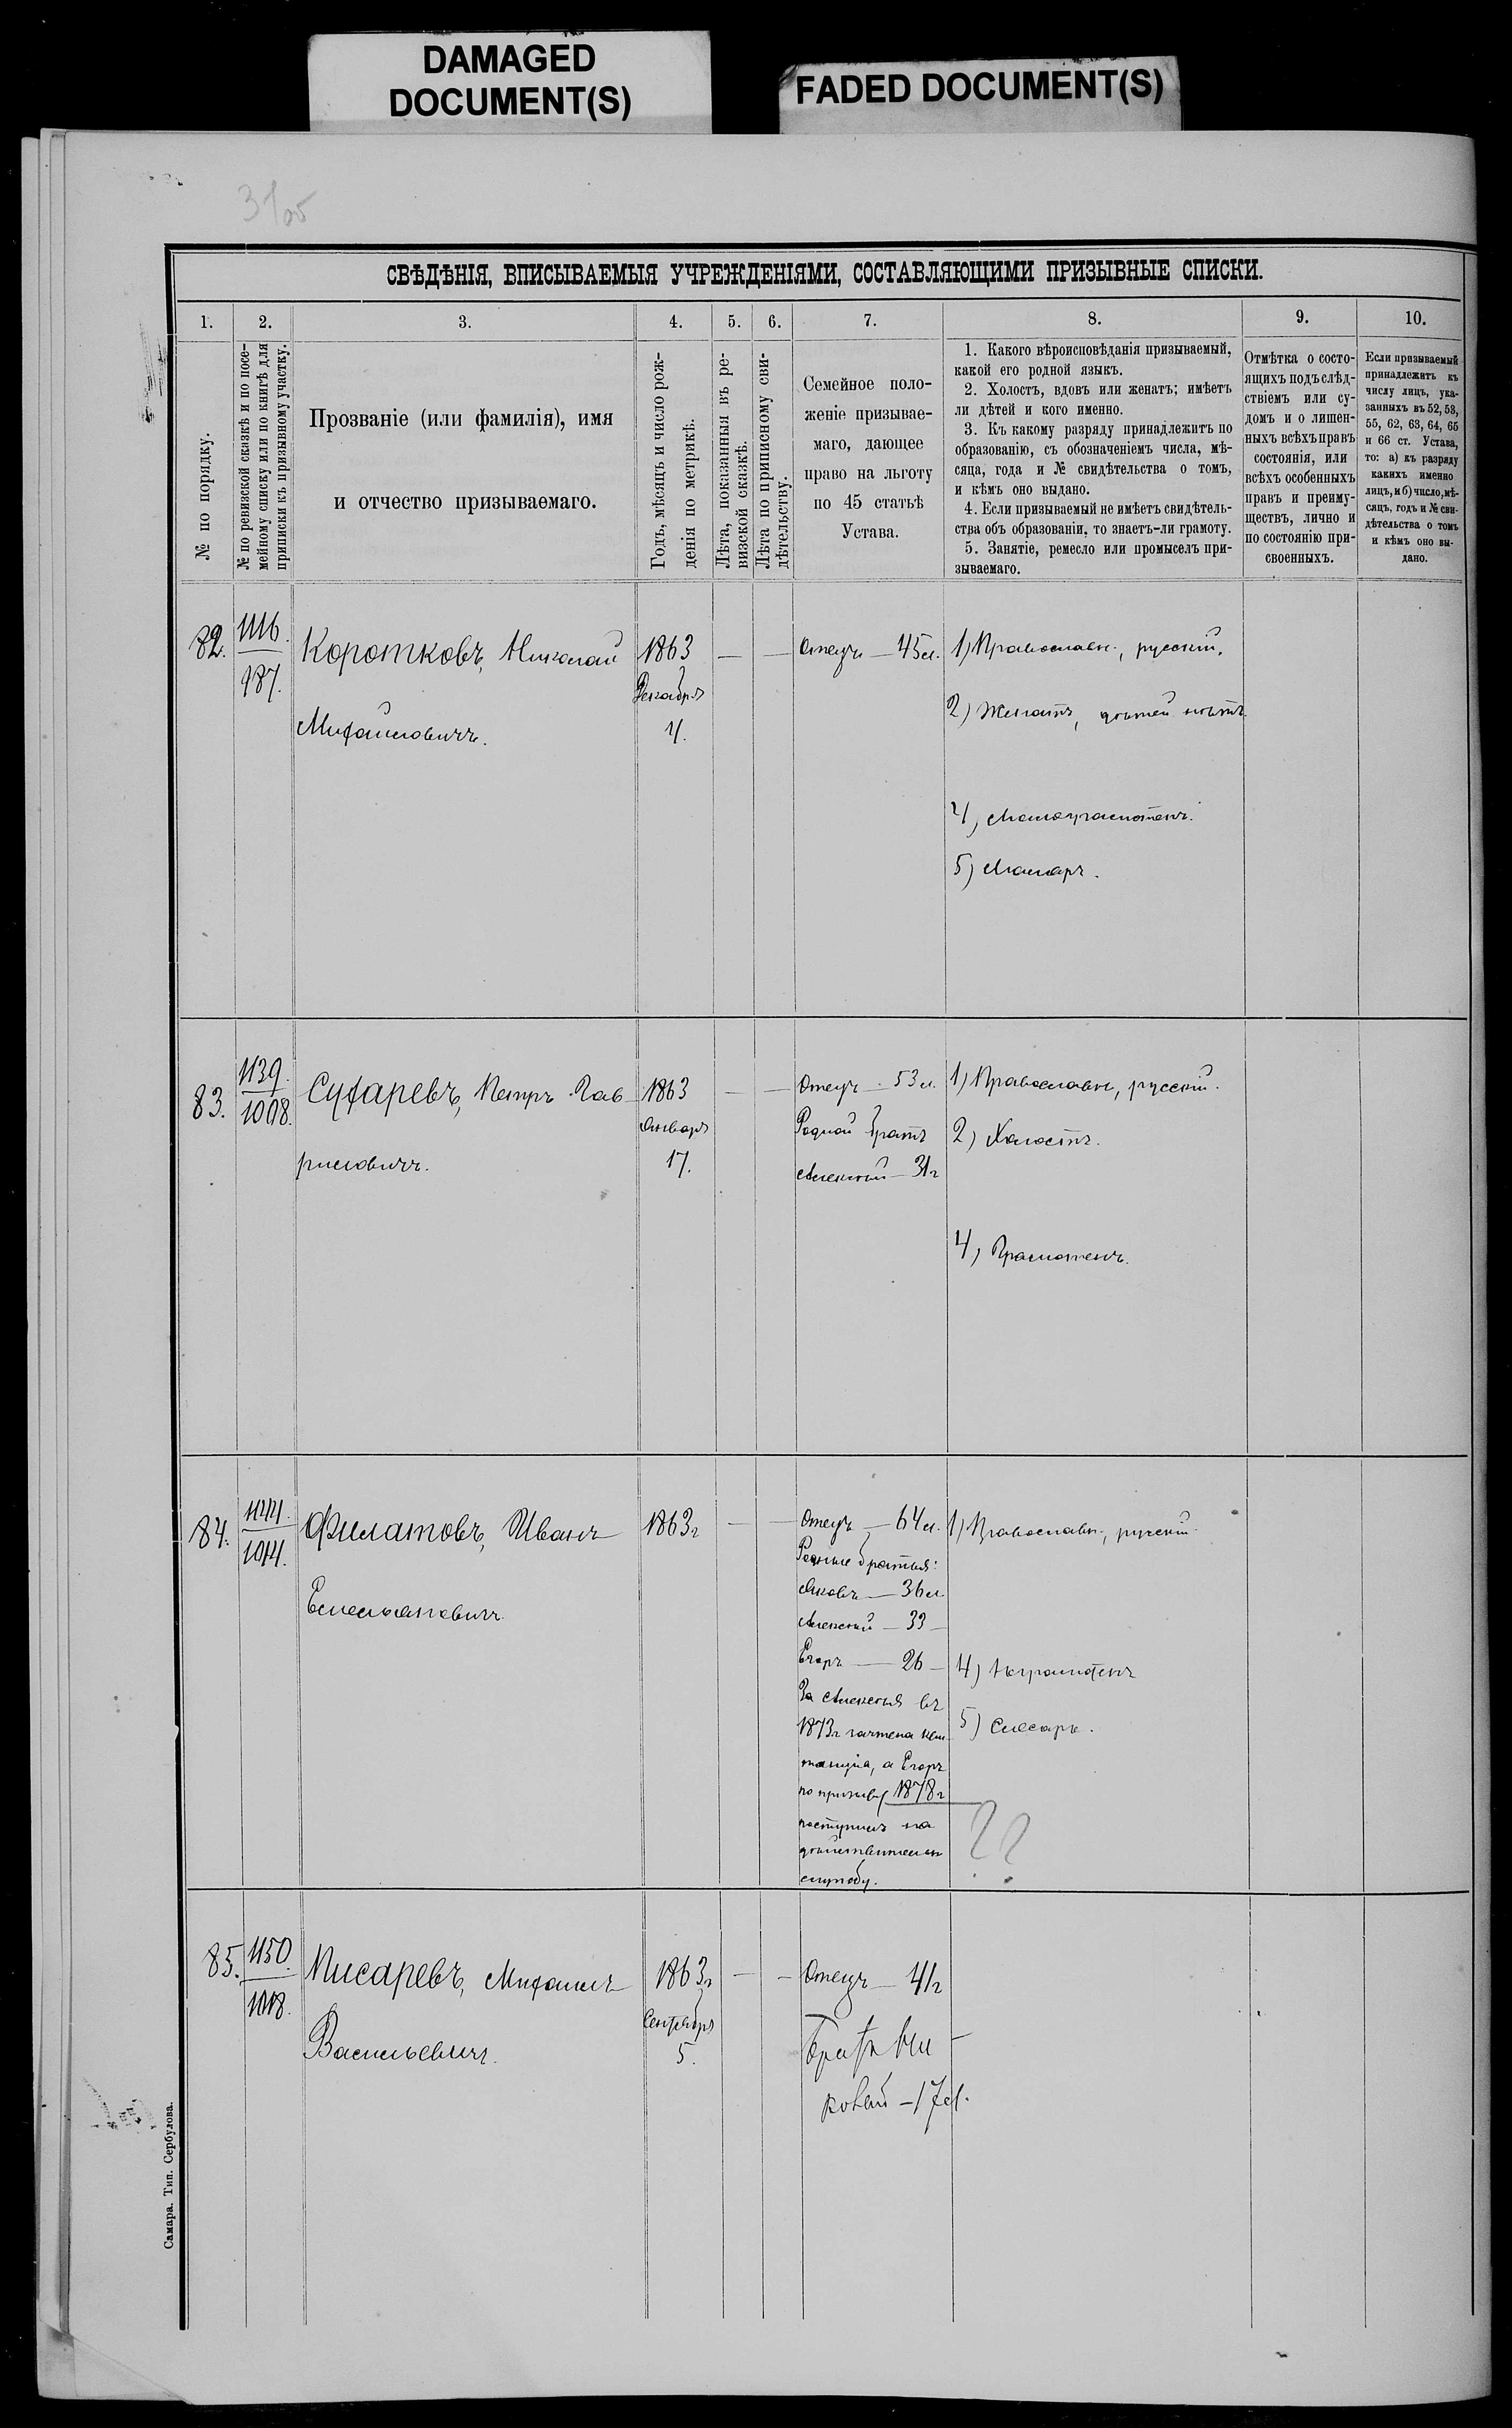 DAMAGED
DOCUMENT(S)
FADED DOCUMENT(S)
СВѢДѢНІЯ, ВПИСЫВАЕМЫЯ УЧРЕЖДЕНІЯМИ, СОСТАВЛЯЮЩИМИ ПРИЗЫВНЫЕ СПИСКИ.
1.
2.
3.
4.
5.
6.
7.
8.
9.
10.
№ по порядку.
№ по ревизской сказкѣ и по посе-
мейному списку или по книгѣ для
приписки къ призывному участку.
Прозваніе (или фамилія), имя
и отчество призываемаго.
Годъ, мѣсяцъ и число рож-
денія по метрикѣ.
Лѣта, показанныя въ ре-
визской сказкѣ.
Лѣта по приписному сви-
дѣтельству.
Семейное поло-
женіе призывае-
маго, дающее
право на льготу
по 45 статьѣ
Устава.
1. Какого вѣроисповѣданія призываемый,
какой его родной языкъ.
2. Холостъ, вдовъ или женатъ; имѣетъ
ли дѣтей и кого именно.
3. Къ какому разряду принадлежитъ по
образованію, съ обозначеніемъ числа, мѣ-
сяца, года и № свидѣтельства о томъ,
и кѣмъ оно выдано.
4. Если призываемый не имѣетъ свидѣтель-
ства объ образованіи, то знаетъ-ли грамоту.
5. Занятіе, ремесло или промыселъ при-
зываемаго.
Отмѣтка о состо-
ящихъ подъ слѣд-
ствіемъ или су-
домъ и о лишен-
ныхъ всѣхъ правъ
состоянія, или
всѣхъ особенныхъ
правъ и преиму-
ществъ, лично и
по состоянію при-
своенныхъ.
Если призываемый
принадлежитъ къ
числу лицъ, ука-
занныхъ въ 52, 53,
55, 62, 63, 64, 65
и 66 ст. Устава,
то: а) къ разряду
какихъ именно
лицъ, и б) число, мѣ-
сяцъ, годъ и № сви-
дѣтельства о томъ
и кѣмъ оно вы-
дано.
82.
1116.
987.
Коротковъ, Николай
Михайловичъ.
1863
Декабря
4.
—
—
Отецъ — 45 л.
1) Православн., русскій.
2) Женатъ, дѣтей нѣтъ.
4) Малограмотенъ.
5) Маляръ.
83.
1139.
1008.
Сухаревъ, Петръ Гав-
риловичъ.
1863
Января
17.
—
—
Отецъ — 53 л.
Родной братъ
Алексѣй — 31 г
1) Православн., русскій.
2) Холостъ.
4) Грамотенъ.
84.
1144.
1014.
Филатовъ, Иванъ
Емельяновичъ.
1863 г
—
—
Отецъ — 64 л.
Родные братья:
Яковъ — 36 л.
Алексѣй — 33 —
Егоръ — 26 —
За Алексѣя въ
1873 г зачтена кви-
танція, а Егоръ
по призыву 1878 г
поступилъ на
дѣйствительн
службу.
1) Православн., русскій.
4) Неграмотенъ
5) Слесарь.
??
85.
1150.
1018.
Писаревъ, Михаилъ
Васильевичъ.
1863 г
Сентября
5.
—
—
Отецъ — 41 г
Самара. Тип. Сербулова.